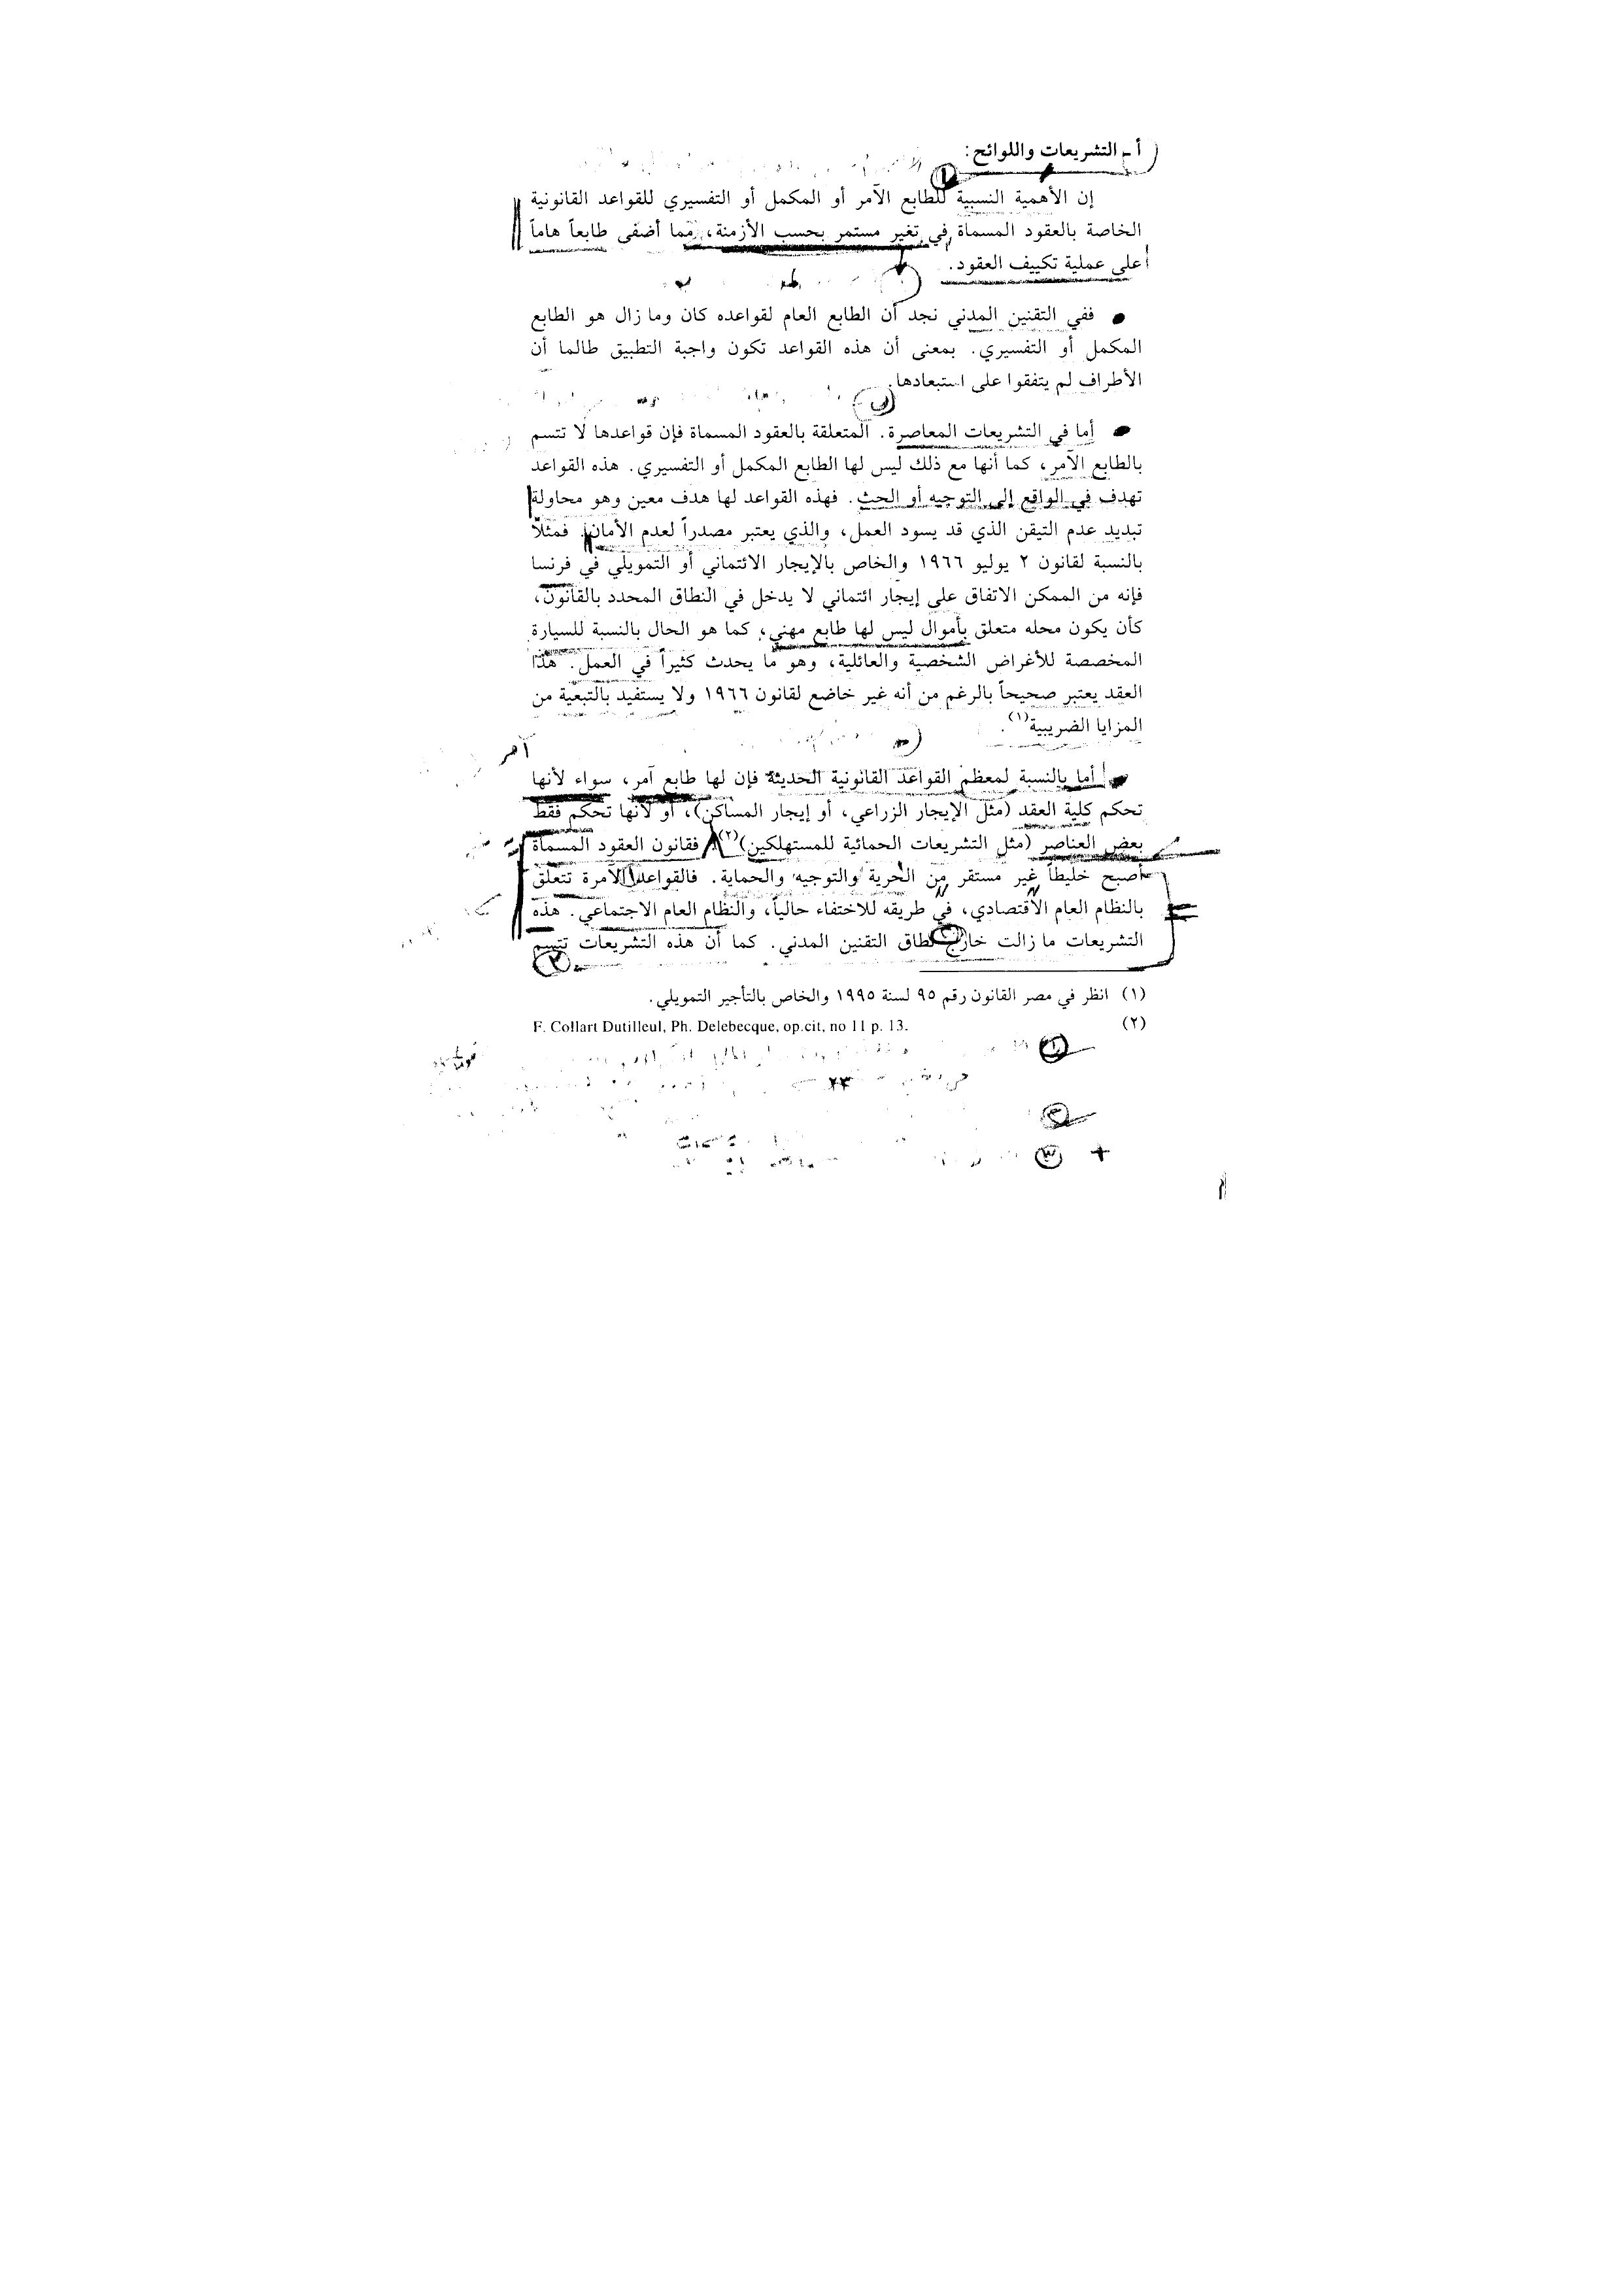 أ - التشريعات واللوائح:
إن الأهمية النسبية للطابع الآمر أو المكمل أو التفسيري للقواعد القانونية
الخاصة بالعقود المسماة في تغير مستمر بحسب الأزمنة، مما أضفى طابعاً هاماً
على عملية تكييف العقود.
● ففي التقنين المدني نجد أن الطابع العام لقواعده كان وما زال هو الطابع
المكمل أو التفسيري. بمعنى أن هذه القواعد تكون واجبة التطبيق طالما أن
الأطراف لم يتفقوا على استبعادها.
● أما في التشريعات المعاصرة. المتعلقة بالعقود المسماة فإن قواعدها لا تتسم
بالطابع الآمر، كما أنها مع ذلك ليس لها الطابع المكمل أو التفسيري. هذه القواعد
تهدف في الواقع إلى التوجيه أو الحث. فهذه القواعد لها هدف معين وهو محاولة
تبديد عدم التيقن الذي قد يسود العمل، والذي يعتبر مصدراً لعدم الأمان. فمثلاً
بالنسبة لقانون ٢ يوليو ١٩٦٦ والخاص بالإيجار الائتماني أو التمويلي في فرنسا
فإنه من الممكن الاتفاق على إيجار ائتماني لا يدخل في النطاق المحدد بالقانون،
كأن يكون محله متعلق بأموال ليس لها طابع مهني، كما هو الحال بالنسبة للسيارة
المخصصة للأغراض الشخصية والعائلية، وهو ما يحدث كثيراً في العمل. هذا
العقد يعتبر صحيحاً بالرغم من أنه غير خاضع لقانون ١٩٦٦ ولا يستفيد بالتبعية من
المزايا الضريبية(١).
آمر
● أما بالنسبة لمعظم القواعد القانونية الحديثة فإن لها طابع آمر، سواء لأنها
تحكم كلية العقد (مثل الإيجار الزراعي، أو إيجار المساكن)، أو لأنها تحكم فقط
بعض العناصر (مثل التشريعات الحمائية للمستهلكين)(٢). فقانون العقود المسماة
أصبح خليطاً غير مستقر من الحرية والتوجيه والحماية. فالقواعد الآمرة تتعلق
بالنظام العام الاقتصادي، في طريقه للاختفاء حالياً، والنظام العام الاجتماعي. هذه
التشريعات ما زالت خارج نطاق التقنين المدني. كما أن هذه التشريعات تتسم
(١) انظر في مصر القانون رقم ٩٥ لسنة ١٩٩٥ والخاص بالتأجير التمويلي.
(٢) F. Collart Dutilleul, Ph. Delebecque, op.cit, no 11 p. 13.